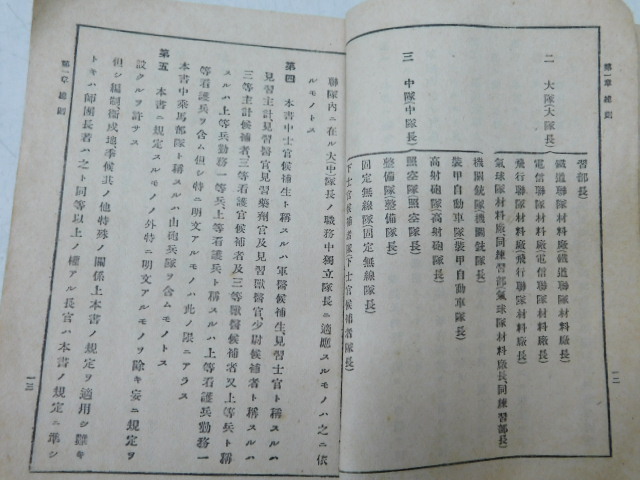 第一章 總則
習部長)
二 大隊(大隊長)
鐵道聯隊材料廠(鐵道聯隊材料廠長)
電信聯隊材料廠(電信聯隊材料廠長)
飛行聯隊材料廠(飛行聯隊材料廠長)
氣球隊材料廠同練習部(氣球隊材料廠長、同練習部長)
三 中隊(中隊長)
機關銃隊(機關銃隊長)
裝甲自動車隊(裝甲自動車隊長)
高射砲隊(高射砲隊長)
照空隊(照空隊長)
整備隊(整備隊長)
固定無線隊(固定無線隊長)
下士官候補者隊(下士官候補者隊長)
一二
聯隊內ニ在ル大(中)隊長ノ職務中獨立隊長ニ適應スルモノハ之ニ依
ルモノトス
第四 本書中士官候補生ト稱スルハ軍醫候補生、見習士官ト稱スルハ
見習主計、見習醫官、見習藥劑官及見習獸醫官、少尉候補者ト稱スルハ
三等主計候補者、三等看護官候補者及三等獸醫候補者又上等兵ト稱
スルハ上等兵勤務一等兵、上等看護兵ト稱スルハ上等看護兵勤務一
等看護兵ヲ含ム但シ特ニ明文アルモノハ此ノ限ニアラス
本書中乘馬部隊ト稱スルハ山砲兵隊ヲ含ムモノトス
第五 本書ニ規定スルモノノ外特ニ明文アルモノヲ除キ妄ニ規定ヲ
設クルヲ許サス
但シ編制、衞戍地、季候其ノ他特殊ノ關係上本書ノ規定ヲ適用シ難キ
トキハ師團長若ハ之ト同等以上ノ權アル長官ハ本書ノ規定ニ準シ
第一章 總則
一三